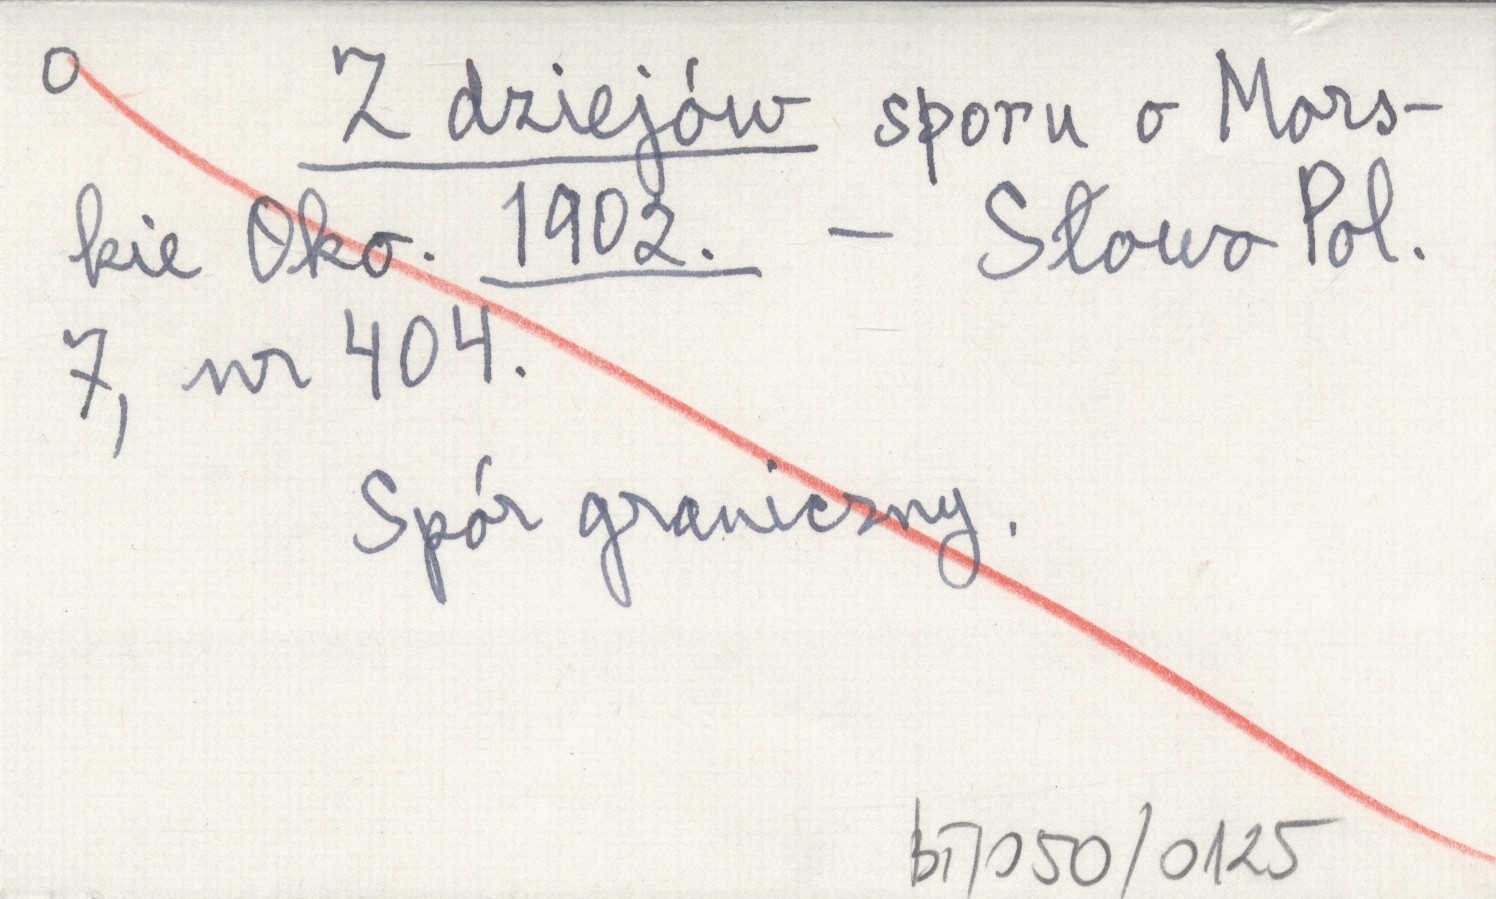 O Z dziejów sporu o Mors-
kie Oko. 1902. – Słowo Pol.
7, nr 404.
Spór graniczny.
/0125